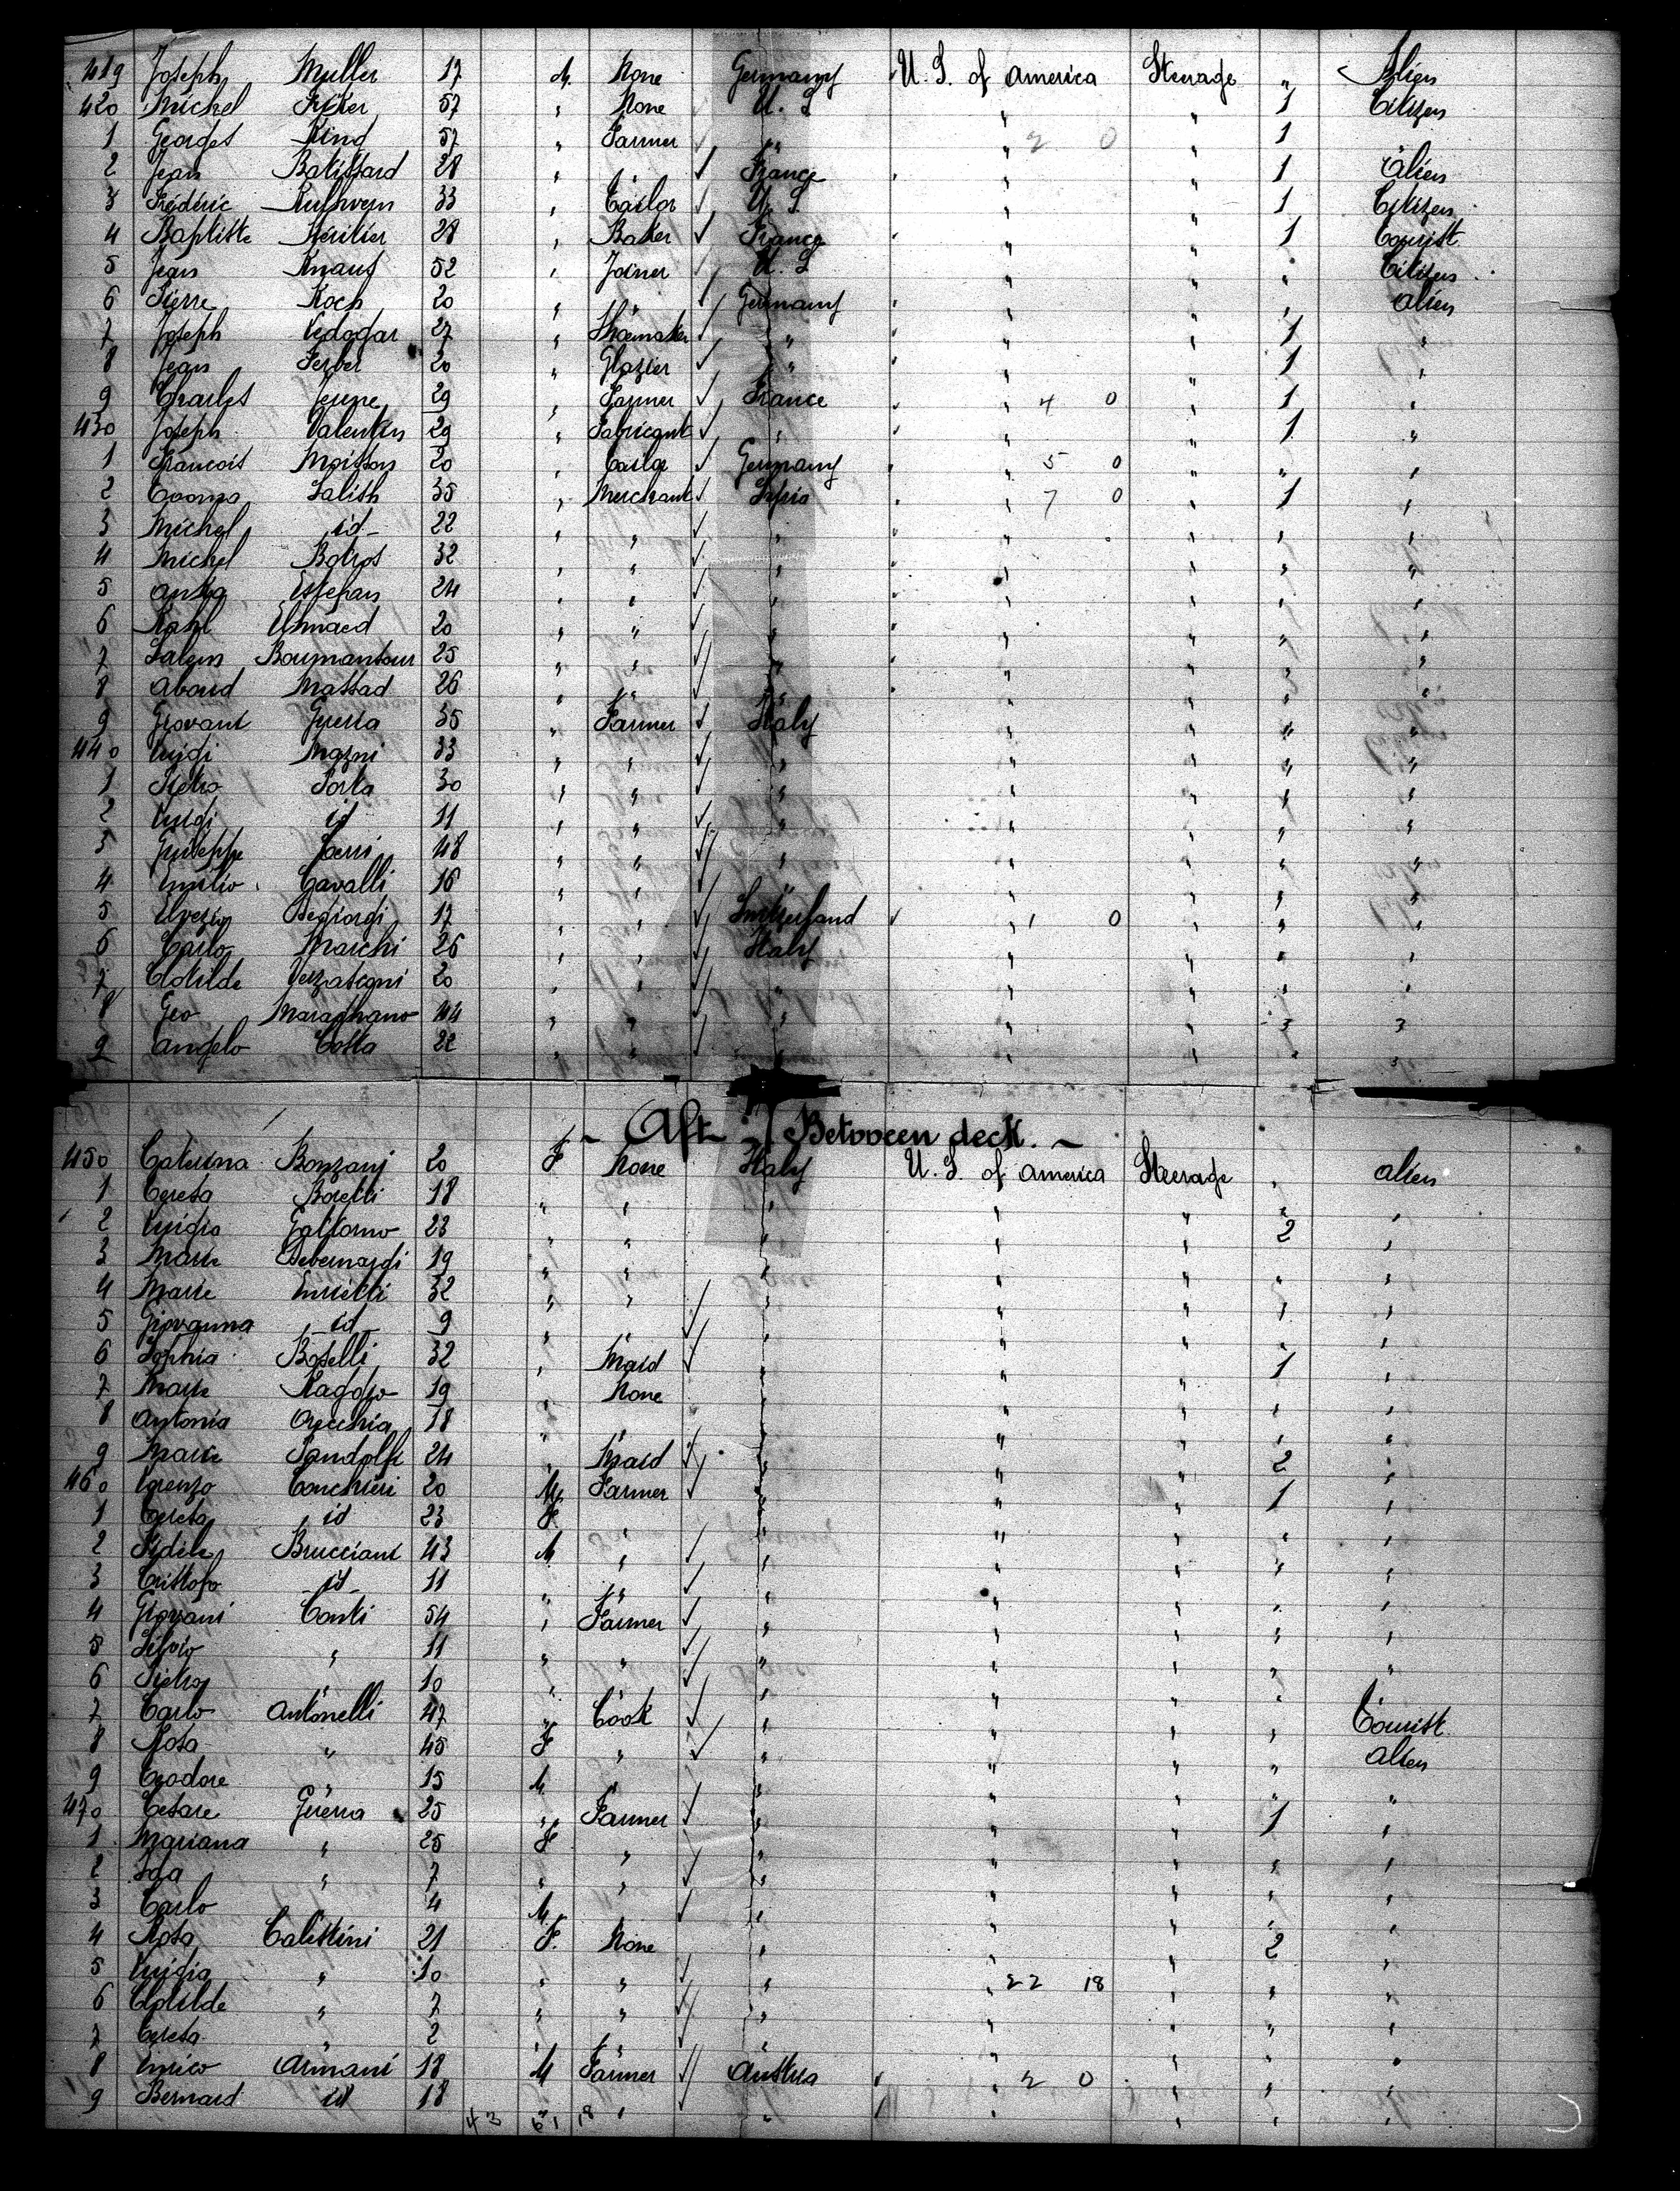 419 Joseph Muller 17 M. None Germany U. S. of America Steerage " Alien
420 Michel 57 " None U. S " " 1 Citizen
1 Georges King 57 " Farmer " " 2 0 " 1
2 Jean Balissard 28 " " France " " 1 Alien
3 Frédéric 33 " Tailor U. S " " 1 Citizen
4 Baptiste 28 " Baker France " " 1 Tourist
5 Jean Knauf 52 " Joiner U. S " " " Citizen
6 Pierre Koch 20 " " Germany " " " alien
7 Joseph 27 " Shoemaker " " " 1 "
8 Jean Ferber 20 " Glazier " " " 1 "
9 Charles Jeune 29 " Farmer France " 4 0 " 1 "
430 Joseph Valentin 29 " Fabricant " " " 1 "
1 Francois Moisson 20 " Tailor Germany " 5 0 " " "
2 Salish 35 " Merchant Syria " 7 0 " 1 "
3 Michel id 22 " " " " " " "
4 Michel Botros 32 " " " " " " "
5 Estefan 24 " " " " " " "
6 20 " " " " " " "
7 Salem Boumansour 25 " " " " " " "
8 Aboud Massad 26 " " " " " " "
9 Giovani Guerra 35 " Farmer Italy " " " "
440 Luigi Mazni 33 " " " " " " "
1 Pietro Porta 30 " " " " " " "
2 Luigi id 11 " " " " " " "
3 Guiseppe 48 " " " " " " "
4 Emilio Cavalli 16 " " " " " " "
5 Elvezio Degiorgi 17 " " Switzerland " 1 0 " " "
6 Carlo Marchi 26 " " Italy " " " "
7 Clotilde 20 " " " " " " "
8 Geo Maraghano 44 " " " " " " "
9 Angelo Costa 22 " " " " " " "
~ Aft Between deck. ~
450 Caterina Bonzani 20 F None Italy U. S. of America Steerage " alien
1 Teresa Borelli 18 " " " " " " "
2 Luigia Gattorno 23 " " " " " 2 "
3 Marie Debernardi 19 " " " " " " "
4 Marie 32 " " " " " " "
5 Giovanna id 9 " " " " " " "
6 Sophia Boselli 32 " Maid " " " 1 "
7 Marie Raggio 19 " None " " " " "
8 Antonia Orecchia 18 " " " " " " "
9 Marie Pandolfi 24 " Maid " " " 2 "
460 Lorenzo Conchieri 20 M. Farmer " " " 1 "
1 Teresa id 23 F " " " " "
2 Brucciani 43 M " " " " " "
3 Cristofo id 11 " " " " " " "
4 Giovani Conti 54 " Farmer " " " " "
5 Silvio " 11 " " " " " " "
6 Pietro " 10 " " " " " "
7 Carlo Antonelli 47 " Cook " " " " Tourist
8 Rosa " 45 F " " " " " Alien
9 Teodore " 15 M " " " " " "
470 Cesare Guerra 25 " Farmer " " " 1 "
1 Mariana " 25 F " " " " " "
2 Ida " 7 " " " " " " "
3 Carlo " 4 M " " " " "
4 Rosa Calestini 21 F. None " " 2 "
5 Luigia " 10 " " " 22 18 " " "
6 Clotilde " 7 " " " " " " "
7 Teresa 2 " " " "
8 Enrico Armani 18 M Farmer Austria " 2 0 " " "
9 Bernard id 18 " " " " " " "
43 61 18